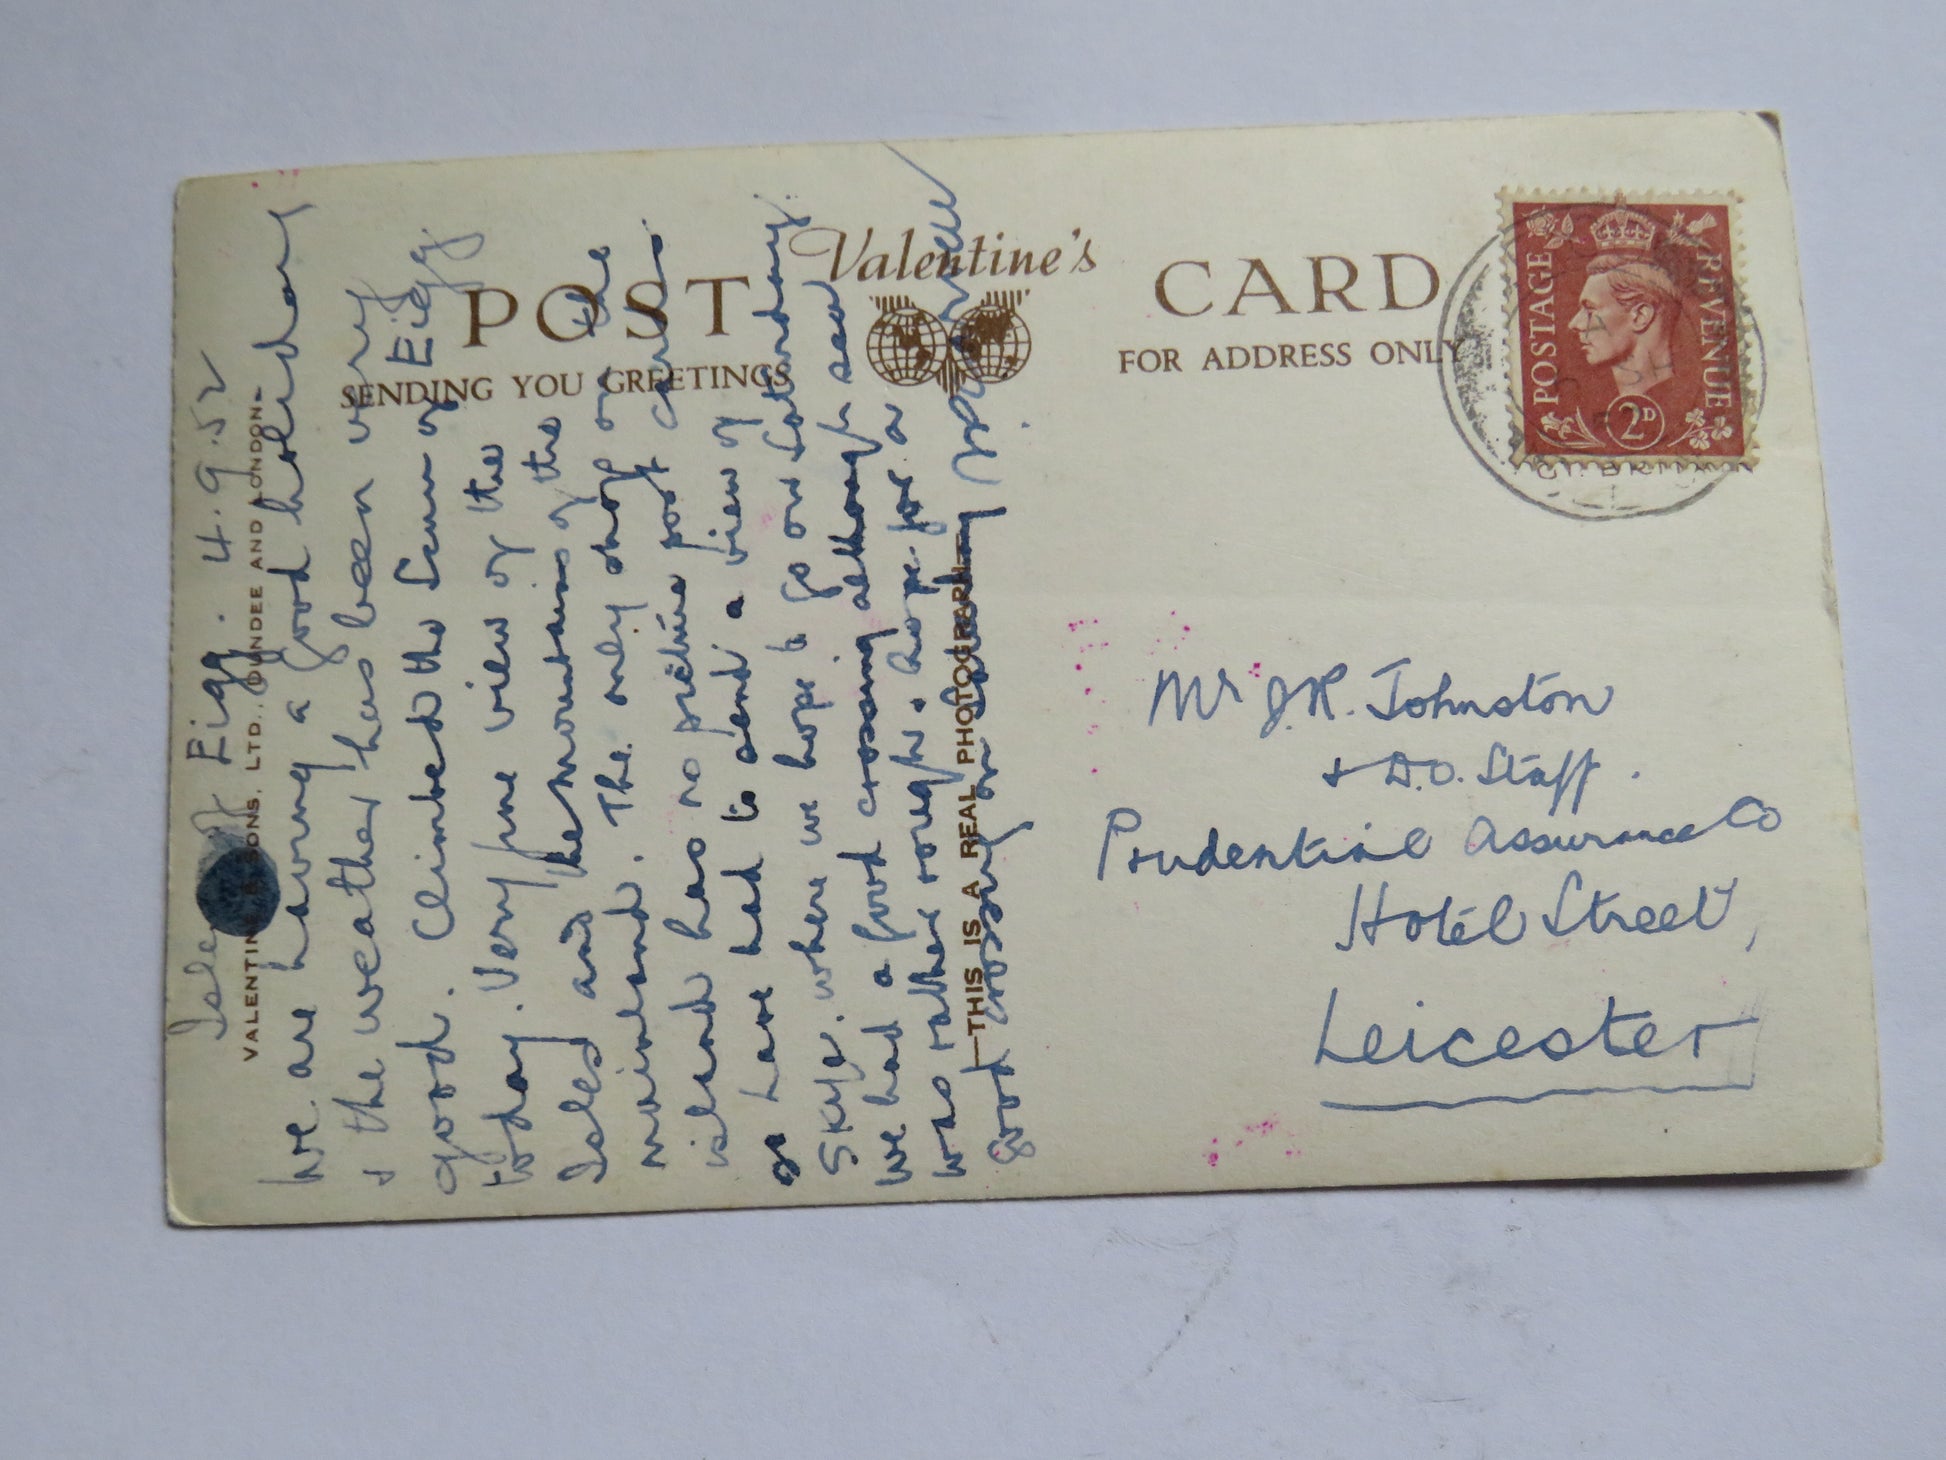 POST
Valentine's
CARD
SENDING YOU GREETINGS
FOR ADDRESS ONLY
VALENTINE & SONS, LTD., DUNDEE AND LONDON.
THIS IS A REAL PHOTOGRAPH
POSTAGE
REVENUE
2D
GT. BRITAIN
Isle of Eigg. 4.9.52
We are having a good holiday
& the weather has been very
good. Climbed the Scurr of Eigg
today. Very fine view of the
Isles and the mountains of the
mainland. The only shop on the
island has no picture post cards
so have had to send a view of
Skye, where we hope to go on Saturday.
We had a good crossing although sea
was rather rough. Hope for a
good crossing on Saturday
Mr J.R. Johnston
& D.O. Staff.
Prudential Assurance Co
Hotel Street,
Leicester